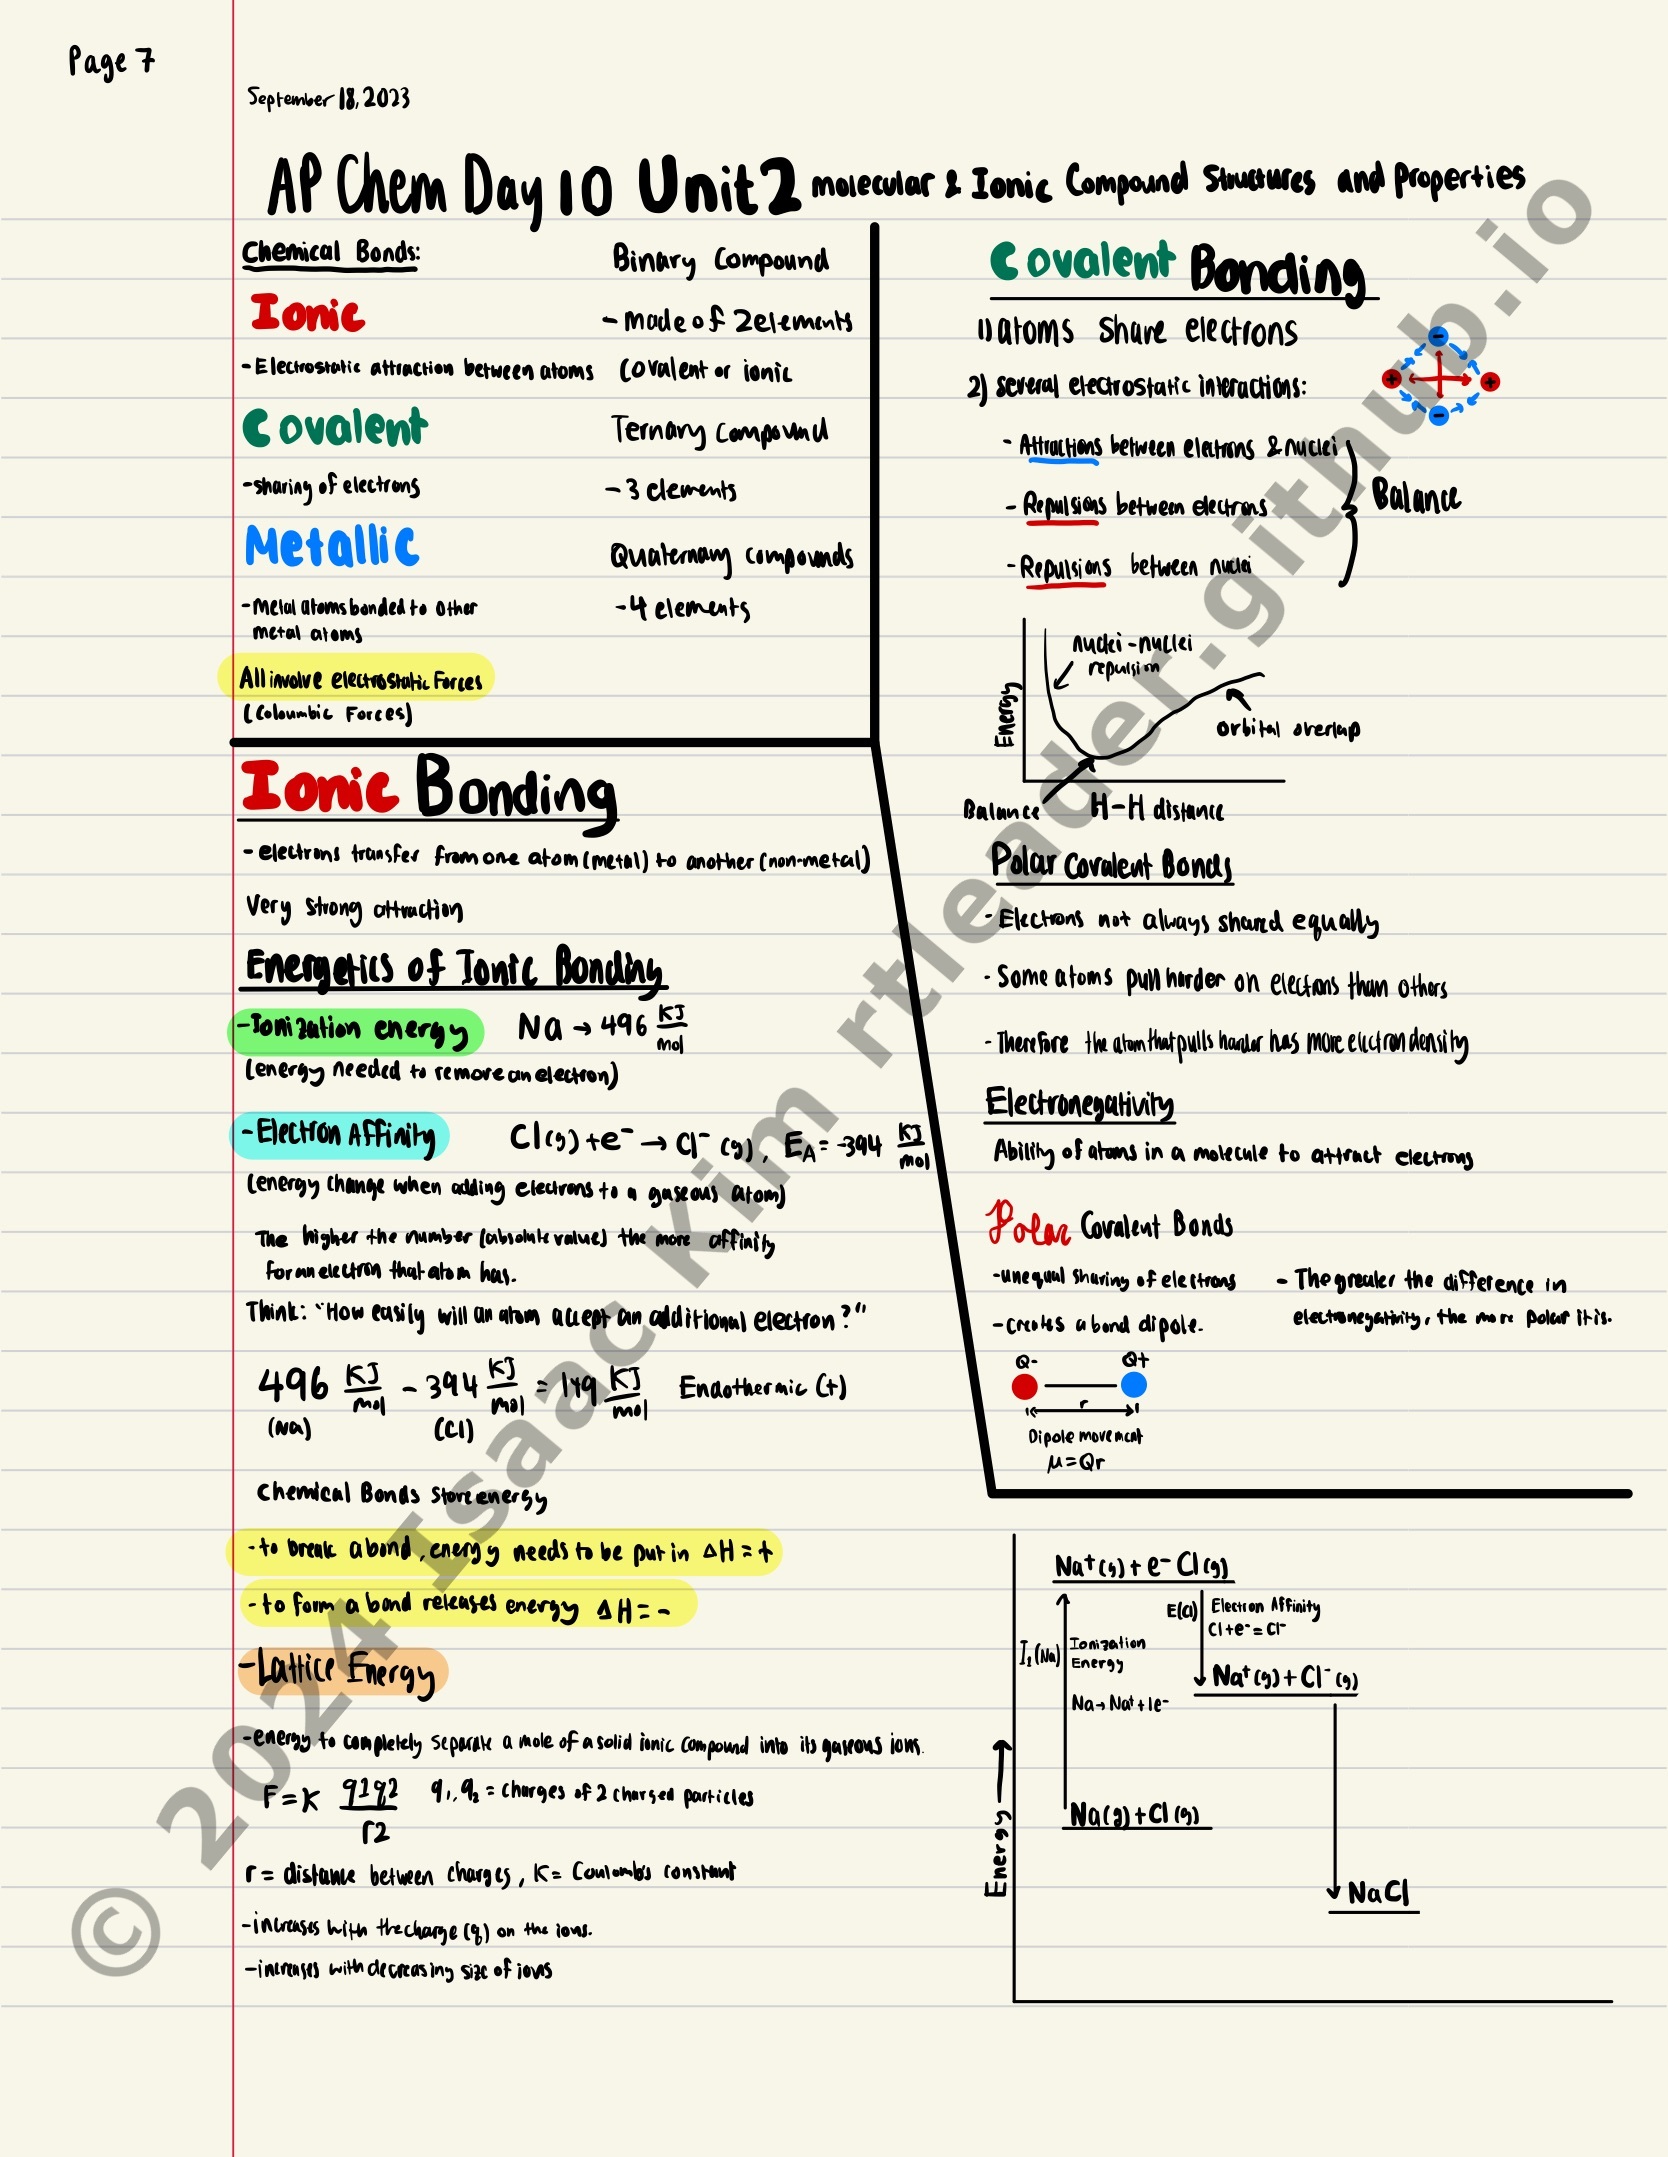 Page 7
September 18, 2023
AP Chem Day 10 Unit 2 molecular & Ionic Compound Structures and Properties
Chemical Bonds:
Ionic
- Electrostatic attraction between atoms
Covalent
- sharing of electrons
Metallic
- Metal atoms bonded to other
metal atoms
All involve electrostatic Forces
(Coloumbic Forces)
Binary Compound
- Made of 2 elements
Covalent or ionic
Ternary Compound
- 3 elements
Quaternary compounds
- 4 elements
Ionic Bonding
- electrons transfer from one atom (metal) to another (non-metal)
Very strong attraction
Energetics of Ionic Bonding
- Ionization energy Na → 496 KJ/mol
(energy needed to remove an electron)
- Electron Affinity Cl(g) + e⁻ → Cl⁻ (g), E_A = -394 KJ/mol
(energy change when adding electrons to a gaseous atom)
The higher the number (absolute value) the more affinity
for an electron that atom has.
Think: "How easily will an atom accept an additional electron?"
496 KJ/mol - 394 KJ/mol = 149 KJ/mol Endothermic (+)
(Na) (Cl)
Chemical Bonds store energy
- to break a bond, energy needs to be put in ΔH = +
- to form a bond releases energy ΔH = -
- Lattice Energy
- energy to completely separate a mole of a solid ionic compound into its gaseous ions.
F = K q1q2/r2 q₁, q₂ = charges of 2 charged particles
r = distance between charges, K = Coulomb's constant
- increases with the charge (q) on the ions.
- increases with decreasing size of ions
Covalent Bonding
1) atoms share electrons
2) several electrostatic interactions:
- Attractions between electrons & nuclei
- Repulsions between electrons
- Repulsions between nuclei
Balance
- + + -
nuclei-nuclei
repulsion
Energy
orbital overlap
Balance
H-H distance
Polar Covalent Bonds
- Electrons not always shared equally
- Some atoms pull harder on electrons than others
- Therefore the atom that pulls harder has more electron density
Electronegativity
Ability of atoms in a molecule to attract electrons
Polar Covalent Bonds
- unequal sharing of electrons
- creates a bond dipole.
- The greater the difference in
electronegativity, the more polar it is.
Q- Q+
r
Dipole movement
μ = Qr
Na⁺(g) + e⁻ Cl(g)
E(Cl)
Electron Affinity
Cl + e⁻ = Cl⁻
I₁(Na)
Ionization
Energy
Na → Na⁺ + 1e⁻
Na⁺(g) + Cl⁻(g)
Energy →
Na(g) + Cl(g)
NaCl
© 2024 Isaac Kim rtleader.github.io